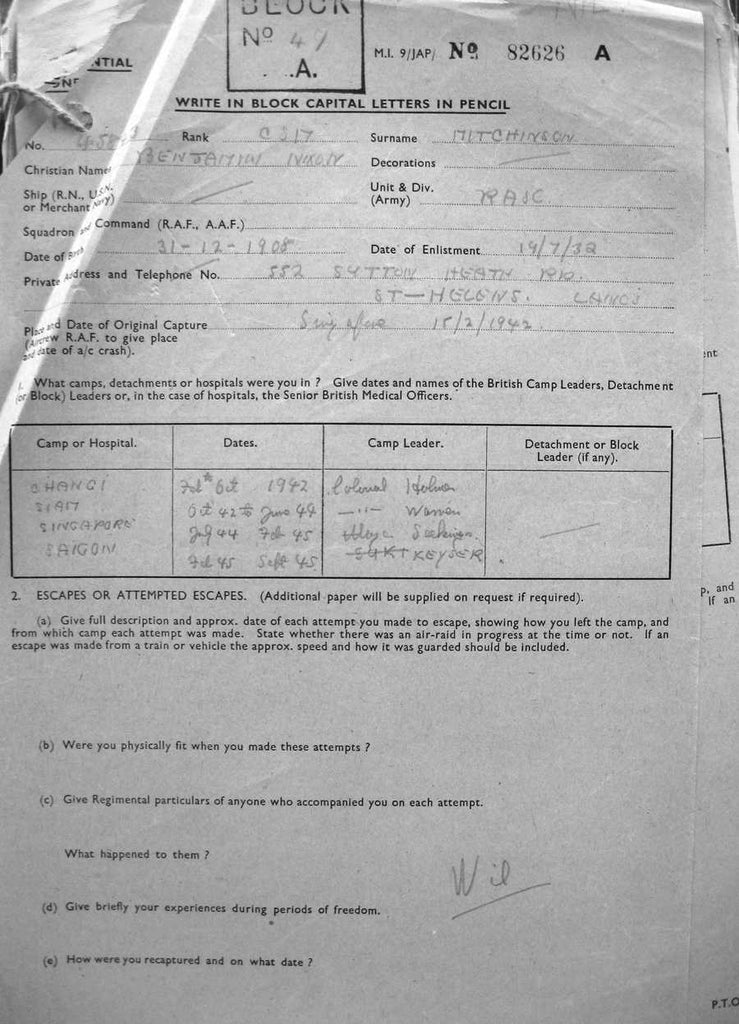 BLOCK
Nº 47
A.
M.I. 9/JAP/ Nº 82626 A
NTIAL
WRITE IN BLOCK CAPITAL LETTERS IN PENCIL
No. Rank Surname MITCHINSON
Christian Name BENJAMIN NIXON Decorations
Ship (R.N., U.S.N. or Merchant Navy)
Unit & Div. (Army) RASC
Squadron Command (R.A.F., A.A.F.)
Date of Birth 31-12-1908 Date of Enlistment 19/7/32
Private Address and Telephone No. 552 SUTTON HEATH RD.
ST-HELENS. LANCS
Place and Date of Original Capture Singapore 15/2/1942.
(Aircrew R.A.F. to give place
and date of a/c crash).
1. What camps, detachments or hospitals were you in ? Give dates and names of the British Camp Leaders, Detachment
(or Block) Leaders or, in the case of hospitals, the Senior British Medical Officers.
Camp or Hospital. Dates. Camp Leader. Detachment or Block
Leader (if any).
CHANGI Feb Oct 1942 Colonel Holmes
SIAM Oct 42 to June 44 —"— Warren
SINGAPORE July 44 Feb 45
SAIGON Feb 45 Sept 45 KEYSER
2. ESCAPES OR ATTEMPTED ESCAPES. (Additional paper will be supplied on request if required).
(a) Give full description and approx. date of each attempt you made to escape, showing how you left the camp, and
from which camp each attempt was made. State whether there was an air-raid in progress at the time or not. If an
escape was made from a train or vehicle the approx. speed and how it was guarded should be included.
(b) Were you physically fit when you made these attempts ?
(c) Give Regimental particulars of anyone who accompanied you on each attempt.
What happened to them ?
(d) Give briefly your experiences during periods of freedom.
(e) How were you recaptured and on what date ?
P.T.O
ent
p, and
If an